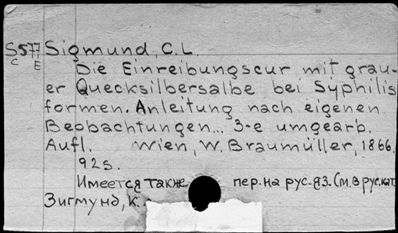 S577 Sigmund, C.L.
C E
Die Einreibungscur mit grau-
er Quecksilbersalbe bei Syphilis
formen. Anleitung nach eigenen
Beobachtungen... 3-e umgearb.
Aufl. Wien, W. Braumüller, 1866.
92s.
Имеется также пер. на рус. яз. См. в рус. кат.
Зигмунд, К.